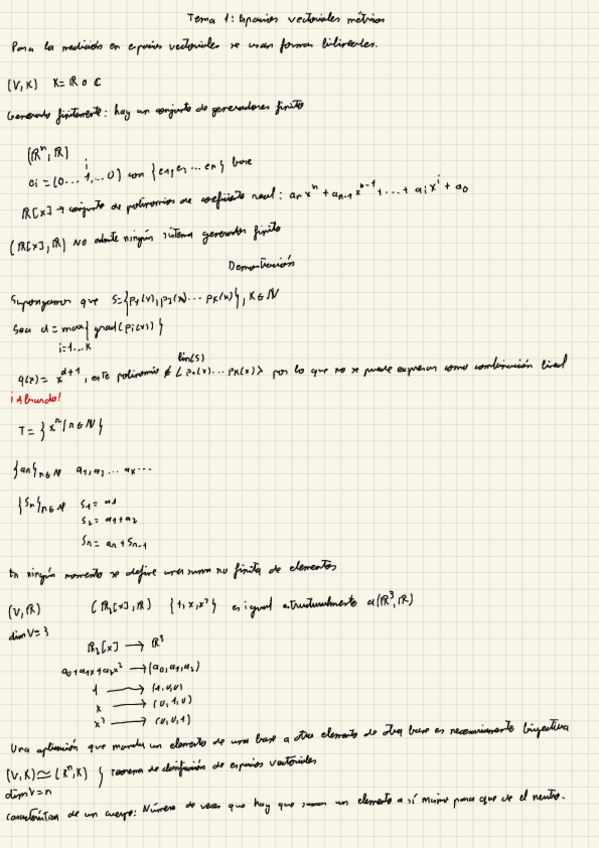 Tema 1: Espacios vectoriales métricos
Para la medición en espacios vectoriales se usan formas bilineales.
(V, K) K = ℝ o ℂ
Generado finitamente: hay un conjunto de generadores finito
(ℝⁿ, ℝ)
i
ei = (0...1,...0) con {e1, e2 ... en} base
ℝ[x] → conjunto de polinomios de coeficiente real: aₙxⁿ + aₙ₋₁xⁿ⁻¹ + ... + a₁xⁱ + a₀
(ℝ[x], ℝ) NO admite ningún sistema generador finito
Demostración
Supongamos que S = {p₁(x), p₂(x) ... pₖ(x)}, K ∈ ℕ
Sea d = max{grad(pi(x))}
i=1...K
lin(S)
q(x) = x^{d+1}, este polinomio ∉ ⟨p₁(x)...pₖ(x)⟩ por lo que no se puede expresar como combinación lineal
¡Absurdo!
T = {xⁿ / n ∈ ℕ}
{an}n∈ℕ a₁, a₂ ... aₖ ...
{Sn}n∈ℕ S₁ = a₁
S₂ = a₁ + a₂
Sₙ = aₙ + Sₙ₋₁
En ningún momento se define una suma no finita de elementos
(V, ℝ) (ℝ₂[x], ℝ) {1, x, x²} es igual estructuralmente a (ℝ³, ℝ)
dim V = 3
ℝ₂[x] → ℝ³
a₀ + a₁x + a₂x² → (a₀, a₁, a₂)
1 → (1,0,0)
x → (0,1,0)
x² → (0,0,1)
Una aplicación que manda un elemento de una base a otro elemento de otra base es necesariamente biyectiva
(V, K) ≃ (Kⁿ, K) } teorema de clasificación de espacios vectoriales
dim V = n
Característica de un cuerpo: Número de veces que hay que sumar un elemento a sí mismo para que de el neutro.